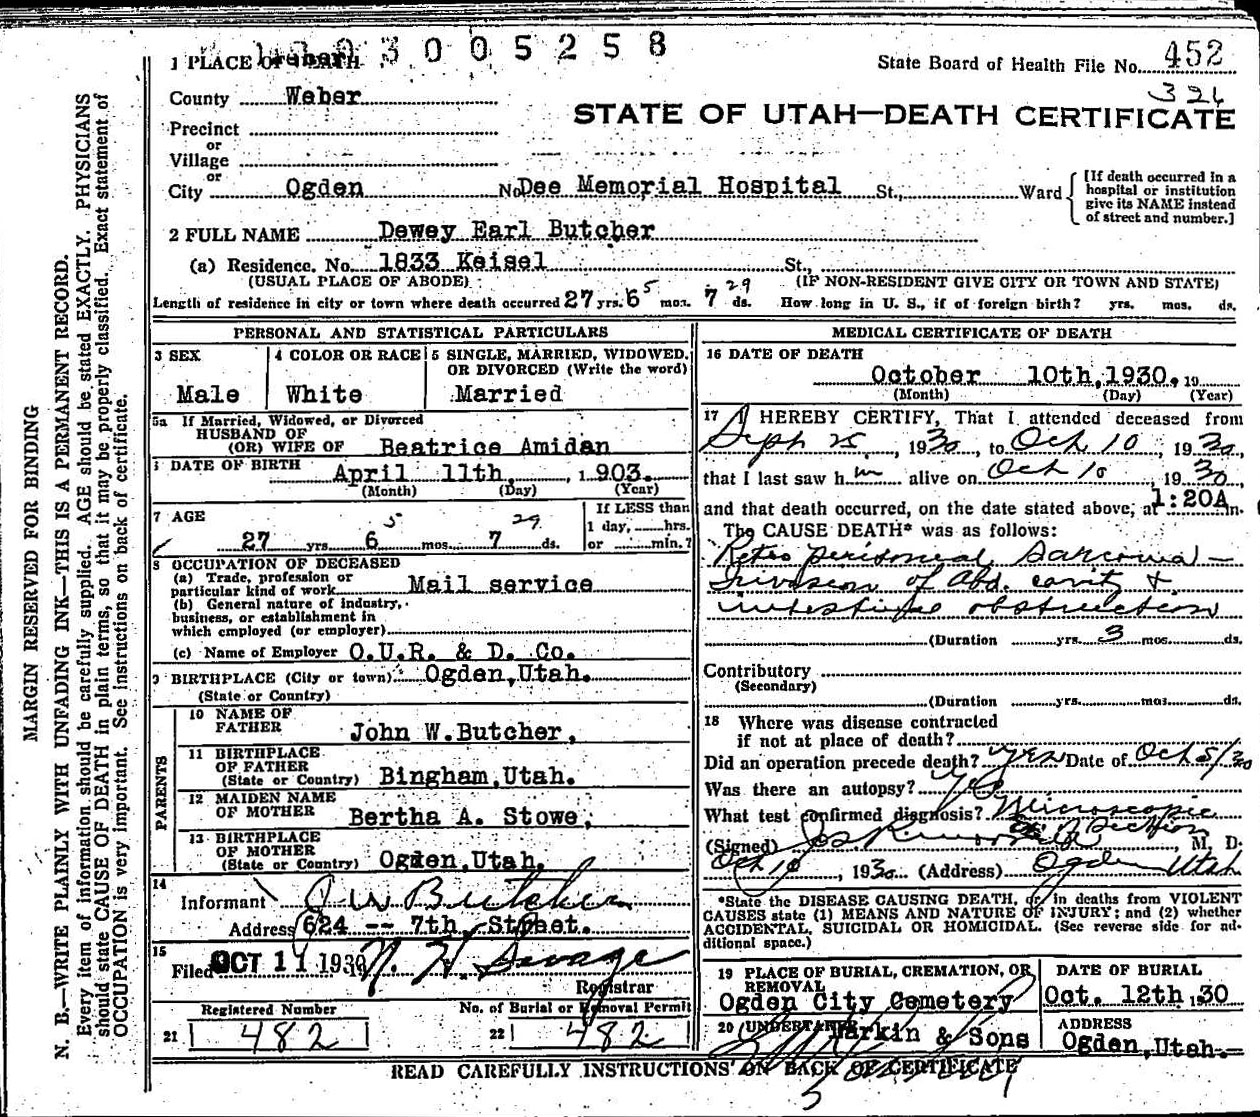 3 0 0 5 2 5 8
1 PLACE OF DEATH
State Board of Health File No. 452
326
County Weber
STATE OF UTAH—DEATH CERTIFICATE
Precinct
or
Village
or
City Ogden No. Dee Memorial Hospital St., Ward
[If death occurred in a
hospital or institution
give its NAME instead
of street and number.]
2 FULL NAME Dewey Earl Butcher
(a) Residence. No. 1833 Keisel St.,
(USUAL PLACE OF ABODE) (IF NON-RESIDENT GIVE CITY OR TOWN AND STATE)
Length of residence in city or town where death occurred 27 yrs. 6 5 mos. 7 29 ds. How long in U. S., if of foreign birth? yrs. mos. ds.
PERSONAL AND STATISTICAL PARTICULARS
3 SEX
Male
4 COLOR OR RACE
White
5 SINGLE, MARRIED, WIDOWED,
OR DIVORCED (Write the word)
Married
5a If Married, Widowed, or Divorced
HUSBAND OF
(OR) WIFE OF Beatrice Amidan
DATE OF BIRTH April 11th, 1903.
(Month) (Day) (Year)
7 AGE
5 29
27 yrs. 6 mos. 7 ds.
If LESS than
1 day, hrs.
or min.?
8 OCCUPATION OF DECEASED
(a) Trade, profession or
particular kind of work Mail service
(b) General nature of industry,
business, or establishment in
which employed (or employer)
(c) Name of Employer O.U.R. & D. Co.
9 BIRTHPLACE (City or town) Ogden, Utah.
(State or Country)
PARENTS
10 NAME OF
FATHER John W. Butcher,
11 BIRTHPLACE
OF FATHER
(State or Country) Bingham, Utah.
12 MAIDEN NAME
OF MOTHER Bertha A. Stowe,
13 BIRTHPLACE
OF MOTHER
(State or Country) Ogden, Utah.
14
Informant J W Butcher
Address 624 -- 7th. Street.
15
Filed OCT 11 1930 Savage
Registrar
Registered Number
21 482
No. of Burial or Removal Permit
22 482
MEDICAL CERTIFICATE OF DEATH
16 DATE OF DEATH
October 10th, 1930. 19
(Month) (Day) (Year)
17 I HEREBY CERTIFY, That I attended deceased from
Sept 25, 1930 to Oct 10, 1930,
that I last saw him alive on Oct 10, 1930
and that death occurred, on the date stated above, at 1:20A m.
The CAUSE DEATH* was as follows:
Retro peritoneal Sarcoma —
Invasion of abd. cavity &
intestinal obstruction
(Duration yrs. 3 mos. ds.
Contributory
(Secondary)
(Duration yrs. mos. ds.
18 Where was disease contracted
if not at place of death?
Did an operation precede death? yes Date of Oct 5/30
Was there an autopsy? yes
What test confirmed diagnosis? Microscopic
Section
(Signed) , M. D.
Oct 10, 1930 (Address) Ogden Utah
*State the DISEASE CAUSING DEATH, or in deaths from VIOLENT
CAUSES state (1) MEANS AND NATURE OF INJURY; and (2) whether
ACCIDENTAL, SUICIDAL OR HOMICIDAL. (See reverse side for ad-
ditional space.)
19 PLACE OF BURIAL, CREMATION, OR
REMOVAL
Ogden City Cemetery
DATE OF BURIAL
Oct. 12th 1930
20 UNDERTAKER Larkin & Sons
ADDRESS
Ogden, Utah.
READ CAREFULLY INSTRUCTIONS ON BACK OF CERTIFICATE
MARGIN RESERVED FOR BINDING
N. B.—WRITE PLAINLY WITH UNFADING INK—THIS IS A PERMANENT RECORD.
Every item of information should be carefully supplied. AGE should be stated EXACTLY. PHYSICIANS
should state CAUSE OF DEATH in plain terms, so that it may be properly classified. Exact statement of
OCCUPATION is very important. See instructions on back of certificate.